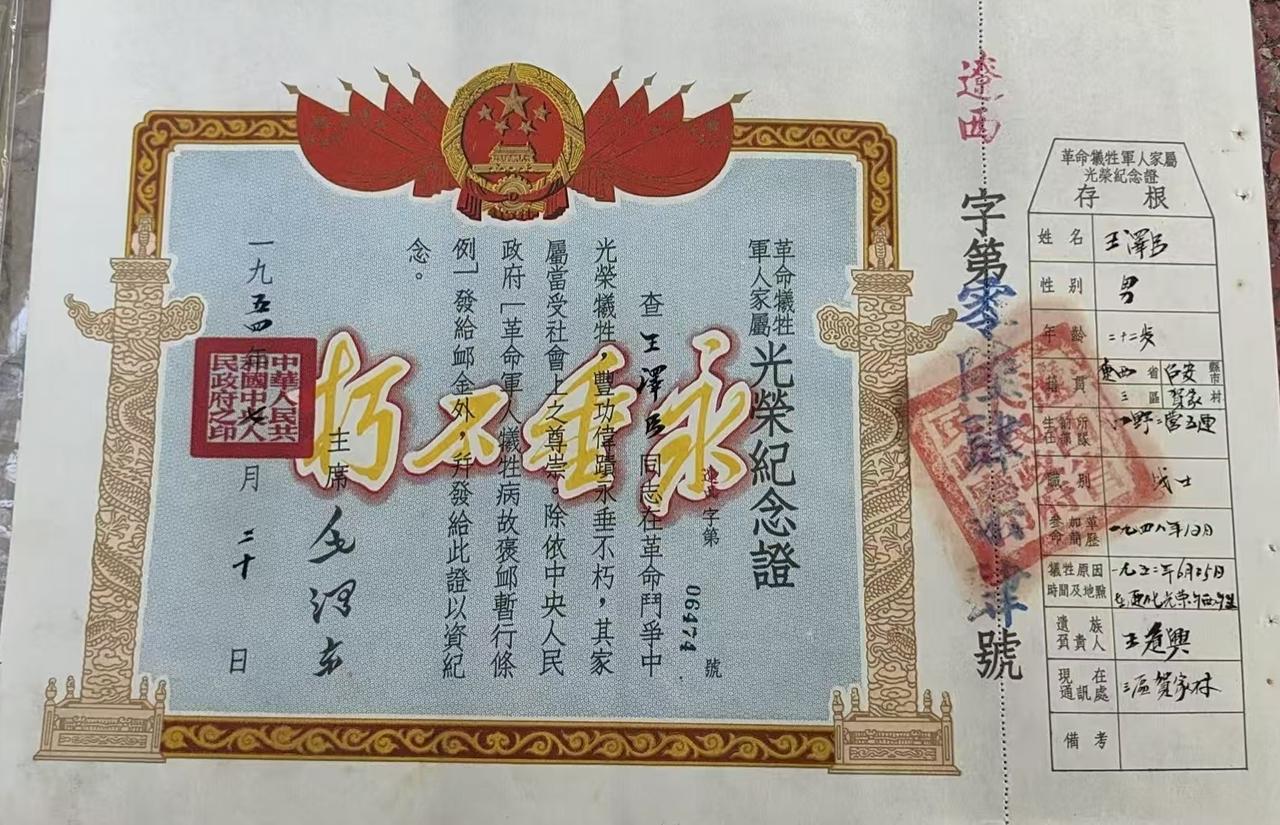 革命犧牲
軍人家屬
光榮紀念證
遼西字第 06474 號
查王澤民同志在革命鬥爭中
光榮犧牲,豐功偉蹟永垂不朽,其家
屬當受社會上之尊崇。除依中央人民
政府「革命軍人犧牲病故褒邺暫行條
例」發給邺金外,幷發給此證以資紀
念。
永垂不朽
主席 毛澤东
一九五四年七月二十日
中華人民共
和國中央人
民政府之印
遼西
字第零陸肆柒肆號
革命犧牲軍人家屬
光榮紀念證
存根
姓名 王澤民
性別 男
年齡 二十二岁
籍貫 省 縣市
三區 賀家村
生前所在部隊 二营五連
職別 战士
參加革命簡歷 一九四八年
犧牲原因時間及地點 一九五二年6月25日
遺族負責人
現在通訊處 三區賀家村
備考